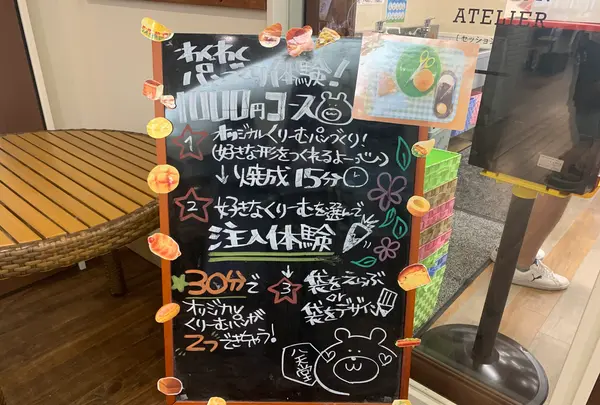 ATELIER
[セッション
わくわく
パン作り体験!
1000円コース
1 オリジナルくりーむパンづくり!
(好きな形をつくれるよー)
↓焼成15分
2 好きなくりーむを選んで
注入体験
3 袋をえらぶ
or
袋をデザイン
30分で
オリジナル
くりーむパンが
2つできちゃう!
八天堂